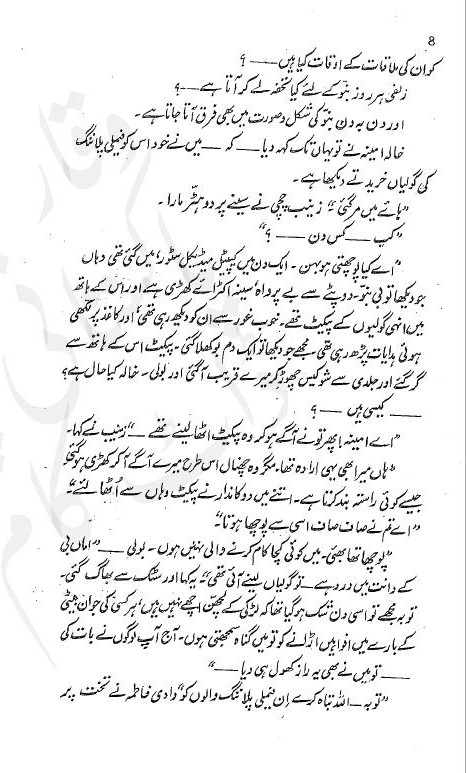 8
کو ان کی ملاقات کے اوقات کیا ہیں ——؟
زلفی ہر روز بنّو کے لئے کیا تحفہ لے کر آتا ہے —؟
اور دن بہ دن بنّو کی شکل و صورت میں بھی فرق آتا جاتا ہے۔
خالہ امینہ نے تو یہاں تک کہہ دیا —— کہ —— میں نے خود اس کو فیملی پلاننگ
کی گولیاں خریدتے دیکھا ہے۔
”ہائے میں مرگئی“ زینب چچی نے سینے پر دو ہتڑ مارا۔
”کب —— کس دن ——؟“
”اے کیا پوچھتی ہو بہن۔ ایک دن میں کیپیٹل میڈیکل سٹور میں گئی تھی وہاں
جو دیکھا تو بی بنّو۔ دوپٹے سے بے پرواہ سینہ اکڑائے کھڑی ہے اور اس کے ہاتھ
میں انہی گولیوں کے پیکٹ تھے۔ خوب غور سے ان کو دیکھ رہی تھی اور کاغذ پر لکھی
ہوئی ہدایات پڑھ رہی تھی۔ مجھے جو دیکھا تو ایک دم بوکھلا گئی۔ پیکٹ اس کے ہاتھ سے
گر گئے اور جلدی سے شوکیس چھوڑ کر میرے قریب آگئی اور بولی۔ خالہ کیا حال ہے؟
—— کیسی ہیں —؟
”اے امینہ! پھر تو نے آگے ہو کر وہ پیکٹ اٹھا لینے تھے“ — زینب نے کہا۔
”ہاں میرا بھی یہی ارادہ تھا۔ مگر وہ چھناں اس طرح میرے آگے آکر کھڑی ہوگئی
جیسے کوئی راستہ بند کرتا ہے۔ اتنے میں دوکاندار نے پیکٹ وہاں سے اُٹھا لئے“۔
”اے تم نے صاف صاف اسی سے پوچھا ہوتا“۔
”پوچھا تھا بھئی۔ میں کوئی کچا کام کرنے والی نہیں ہوں۔ بولی —— ”اماں بی
کے دانت میں درد ہے — تو گولیاں لینے آئی تھی“۔ یہ کہا اور سٹک سے بھاگ گئی۔
توبہ مجھے تو اسی دن شک ہو گیا تھا کہ لڑکی کے لچھن اچھے نہیں ہیں، ہر کسی کی جوان بیٹی
کے بارے میں افواہیں اڑانے کو تو میں گناہ سمجھتی ہوں۔ آج آپ لوگوں نے بات کی
—— تو میں نے بھی یہ راز کھول ہی دیا ——“
”توبہ — اللہ تباہ کرے اِن فیملی پلاننگ والوں کو“ دادی فاطمہ نے تخت پر